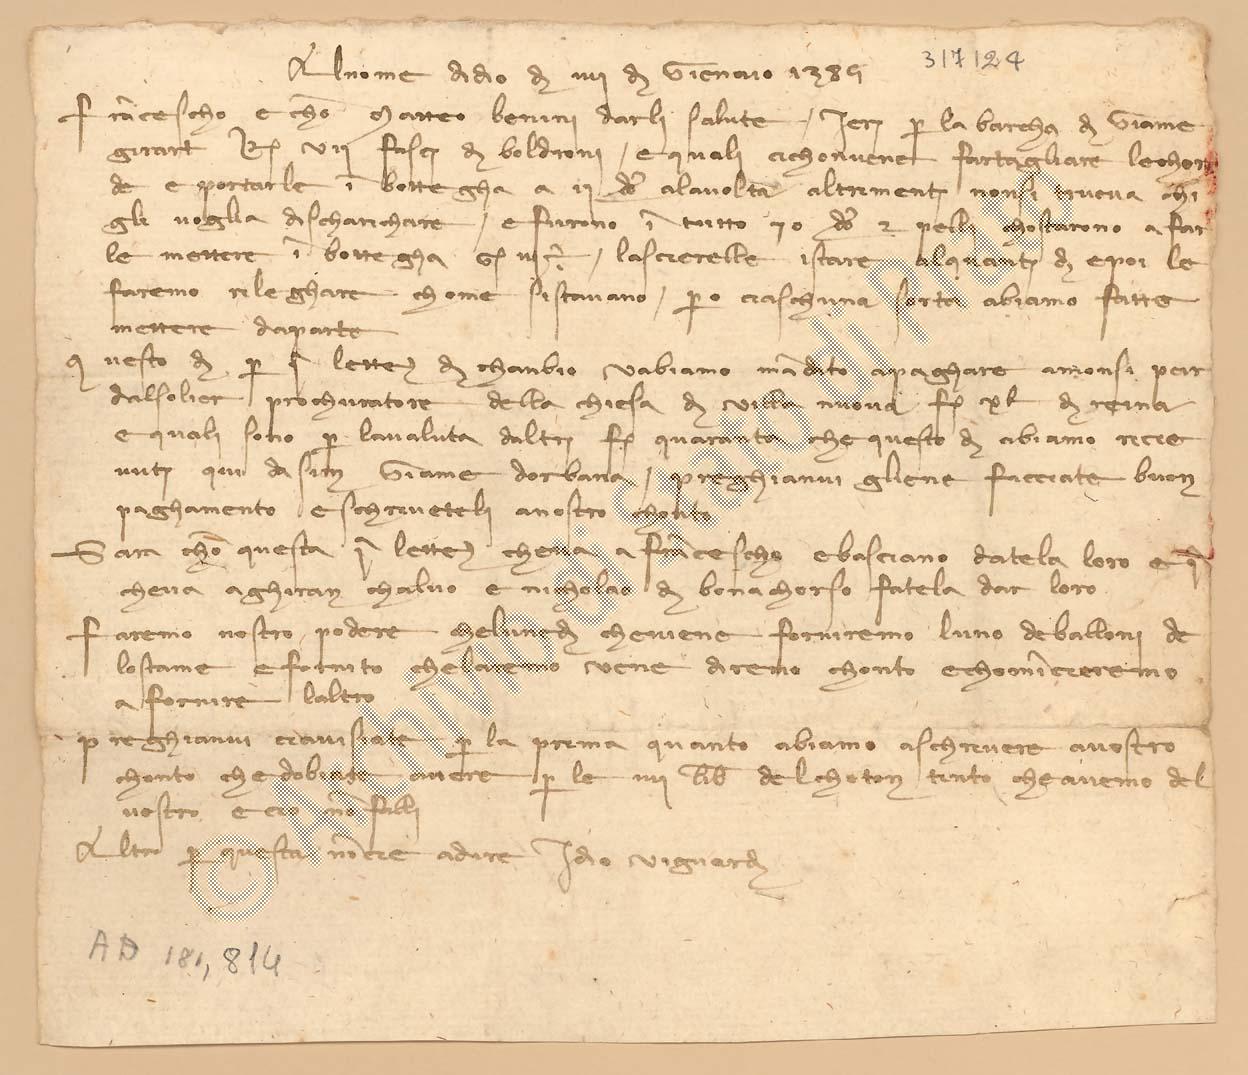 Al nome di dio dì iiii di Giennaio 1389
317124
Franceschо e chon Matteo benini darli salute / Ieri per la barcha di Giame
girart R° vii fasci di boldroni / e quali ci chonvene far tagliare le chor
de e portarle in bottegha a ii dozine a la volta altrimenti non si truova chi
gli voglia discharichare / e furono in tutto 70 dozine 2 pelli chostarono a far
le mettere in bottegha / lascierelle istare alquanti dì e poi le
faremo rileghare chome si stavano / però ciaschuna sorta abiamo fatte
mettere da parte
Questo dì per 1ª lettera di chanbio v'abiamo mandato a paghare a monsi peir
dalsolier prochuratore della chiesa di villa nuova fr. xl di reina
e quali sono per la valuta d'altri fr. quaranta che questo dì abiamo rice
vuti qui da Giame dorbana / preghianvi gliene facciate buon
paghamento e schriveteli a nostro chonto
Sara chon questa 1ª lettera che va a Francescho e basciano datela loro e 1ª
che va a ghiran chalvo e nicholao di bonachorso fatela dar loro
Faremo nostro podere che lunedì che viene forniremo l'uno de balloni de
lo stame e fornito che l'aremo ve ne diremo chonto e chomincieremo
a fornire l'altro
preghianvi ci avisiate per la prima quanto abiamo a schrivere a vostro
chonto che dobiate avere per le iiii libbre del choton tinto che avemo del
vostro e ciò non falli
Altro per questa non ci è a dire Idio vi guardi
AD 181, 814
© Archivio di Stato di Prato